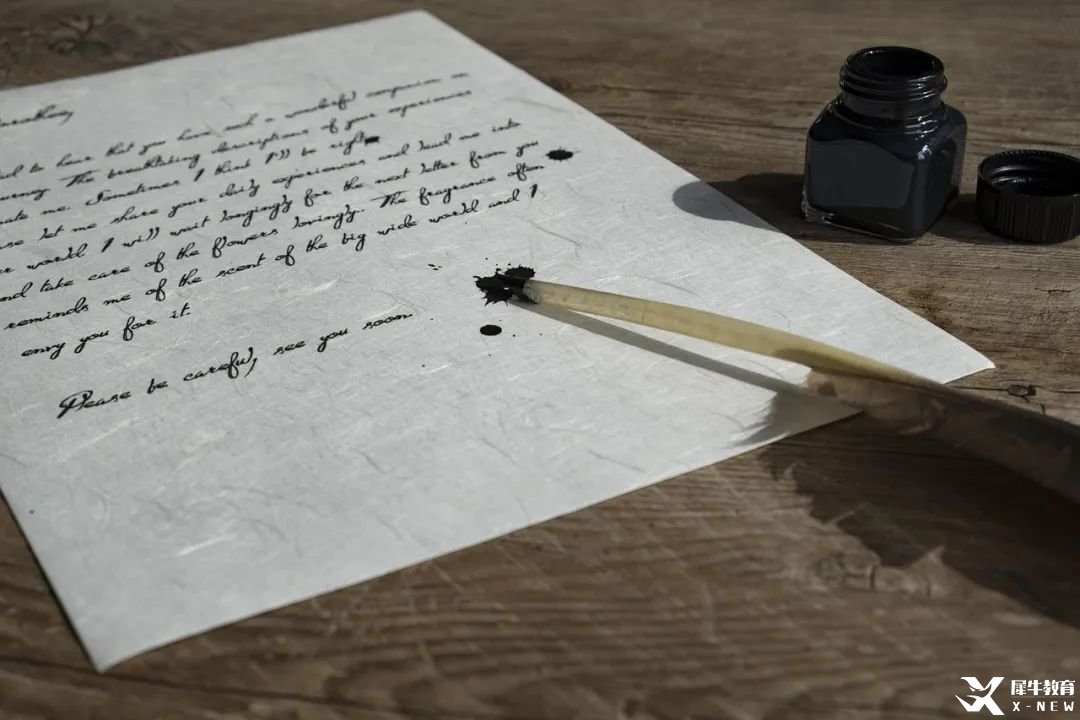 to hear that you have such a wonderful companion on
The breathtaking descriptions of your experiences
me. Sometimes I think I'll be right
let me share your daily experiences and lead me into
world I will wait longingly for the next letter from you
and take care of the flowers lovingly. The fragrance often
reminds me of the scent of the big wide world and I
envy you for it.
Please be careful, see you soon
犀牛教育
X-NEW